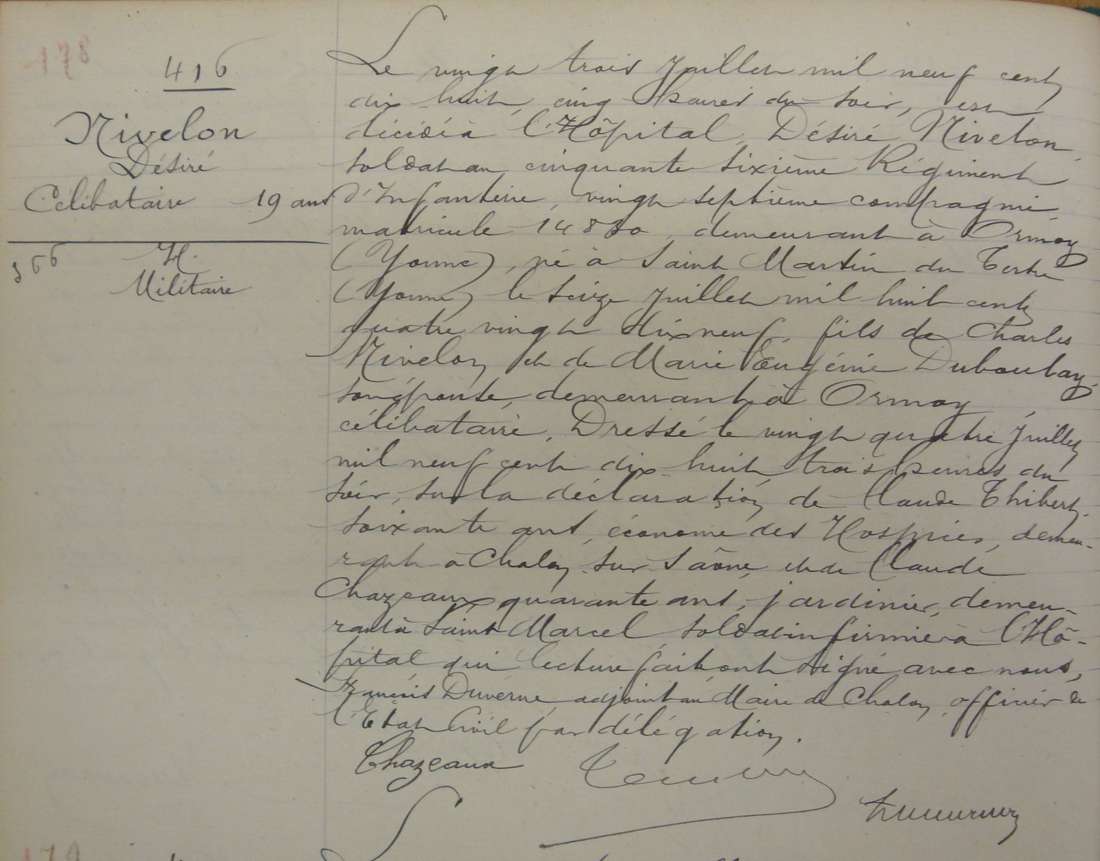 178
416
Nivelon
Désiré
Célibataire 19 ans
366 H.
Militaire
Le vingt trois Juillet mil neuf cent
dix huit, cinq heures du soir, est
décédé à l'Hôpital, Désiré Nivelon
soldat au cinquante sixième Régiment
d'Infanterie, vingt septième compagnie
matricule 14880, demeurant à Ormoy
(Yonne), né à Saint Martin du Tertre
(Yonne) le seize Juillet mil huit cent
quatre vingt dix neuf, fils de Charles
Nivelon et de Marie Eugénie Duboulay,
son épouse, demeurant à Ormoy,
célibataire. Dressé le vingt quatre Juillet
mil neuf cent dix huit trois heures du
soir, sur la déclaration de Claude Thibert,
soixante ans, économe des Hospices, demeu-
rant à Chalon sur Saône, et de Claude
Chazeaux quarante ans, jardinier, demeu-
rant à Saint Marcel soldat infirmier à l'Hô-
pital qui lecture faite ont signé avec nous,
Francis Duverne adjoint au Maire de Chalon, officier de
l'Etat Civil par délégation.
Chazeaux
179